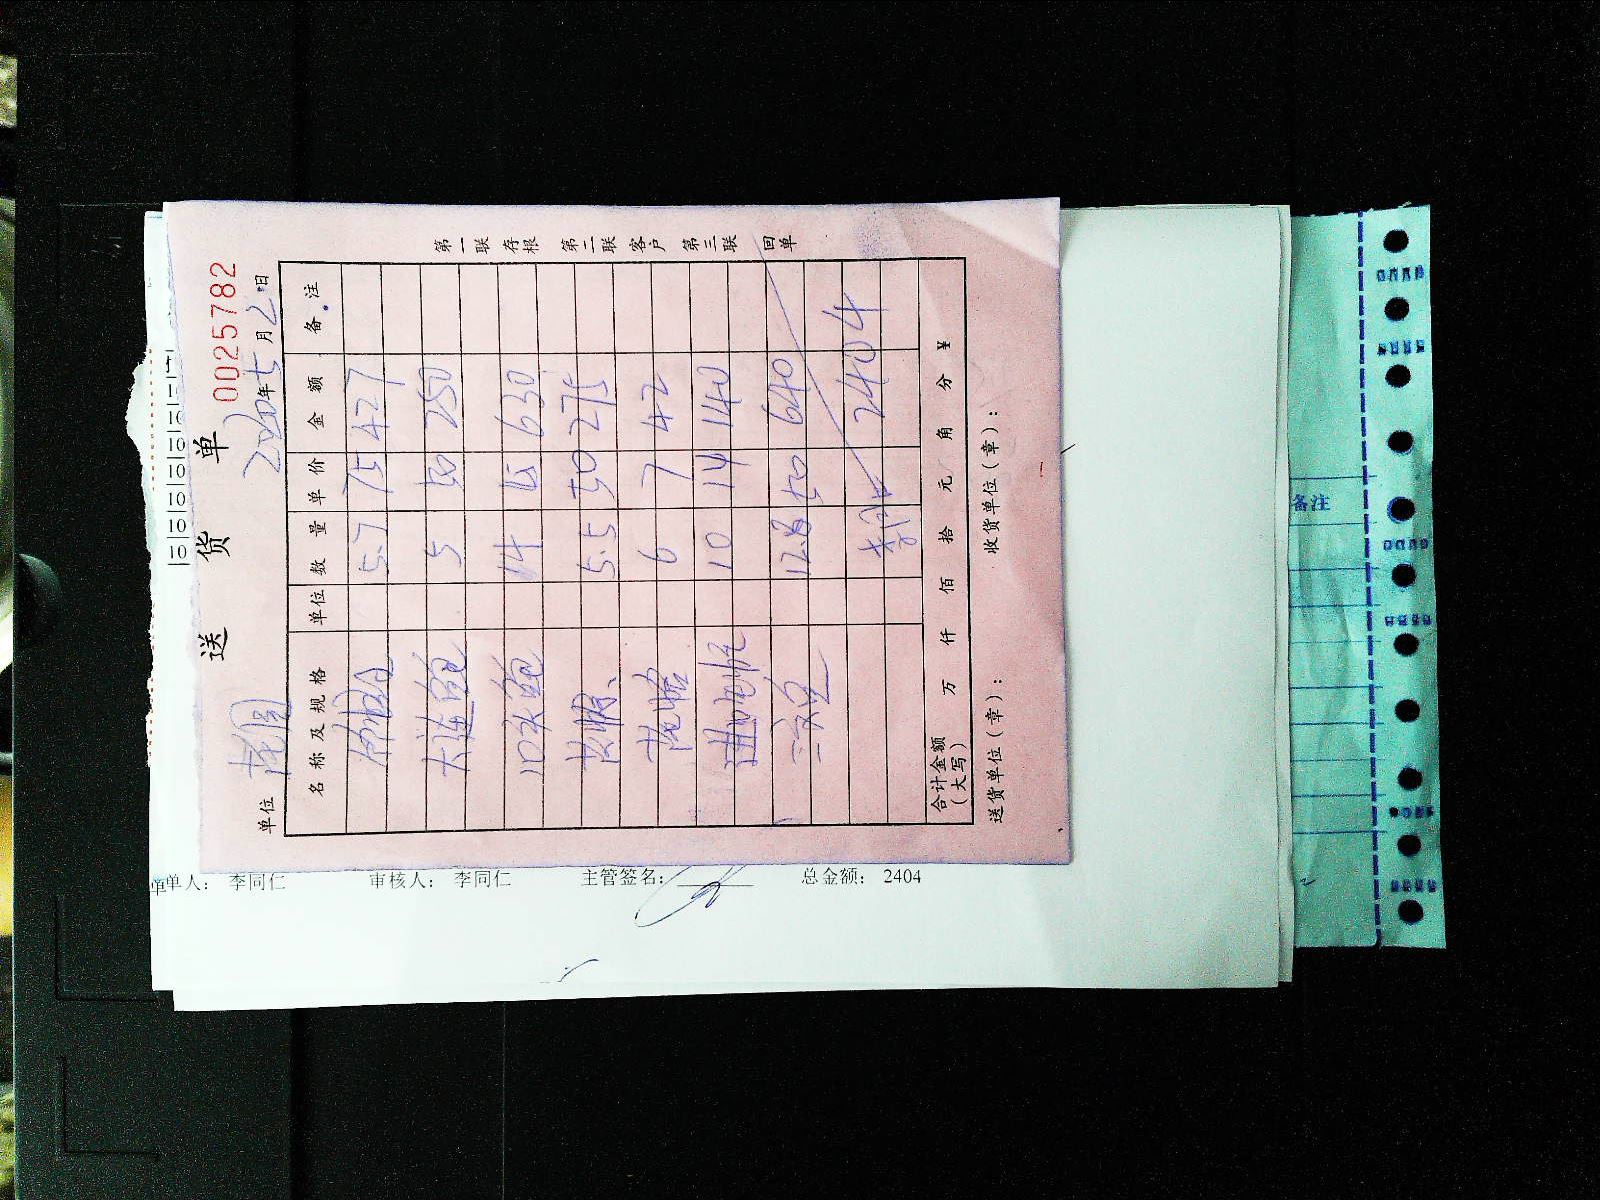 送 货 单
0025782
2020年5月2日
单位
名称及规格 单位 数量 单价 金额 备注
5.7 75 427
大连鲍 5 50 250
10头鲍 14 45 630
5.5 50 275
花蛤 6 7 42
10 14 140
12.8 50 640
2404
合计金额(大写) 万 仟 佰 拾 元 角 分 ¥
送货单位(章): 收货单位(章):
第一联 存根 第二联 客户 第三联 回单
单人: 李同仁 审核人: 李同仁 主管签名: 总金额: 2404
备注